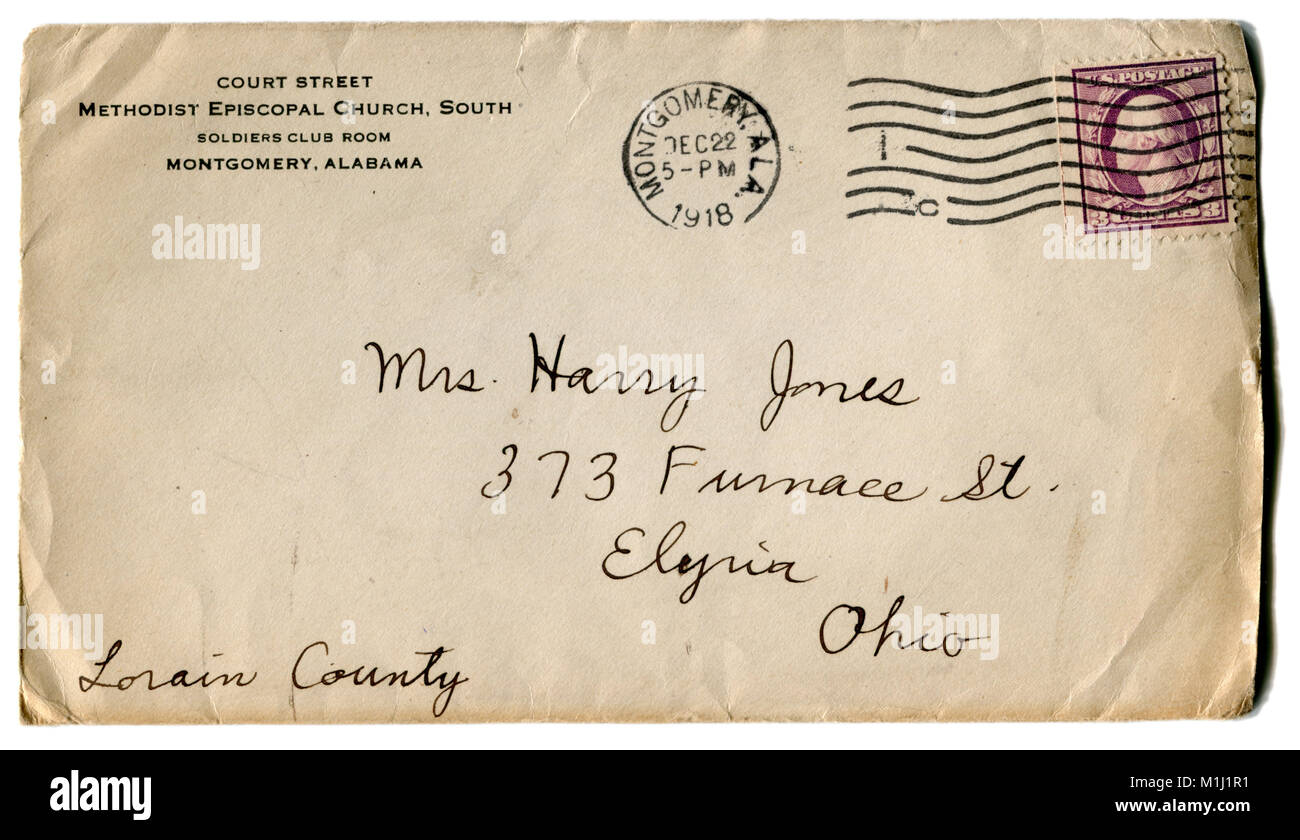 COURT STREET
METHODIST EPISCOPAL CHURCH, SOUTH
SOLDIERS CLUB ROOM
MONTGOMERY, ALABAMA
MONTGOMERY, ALA.
DEC 22
5-PM
1918
U.S. POSTAGE
3 CENTS 3
Mrs. Harry Jones
373 Furnace St.
Elyria
Ohio
Lorain County
alamy
Image ID: M1J1R1
www.alamy.com